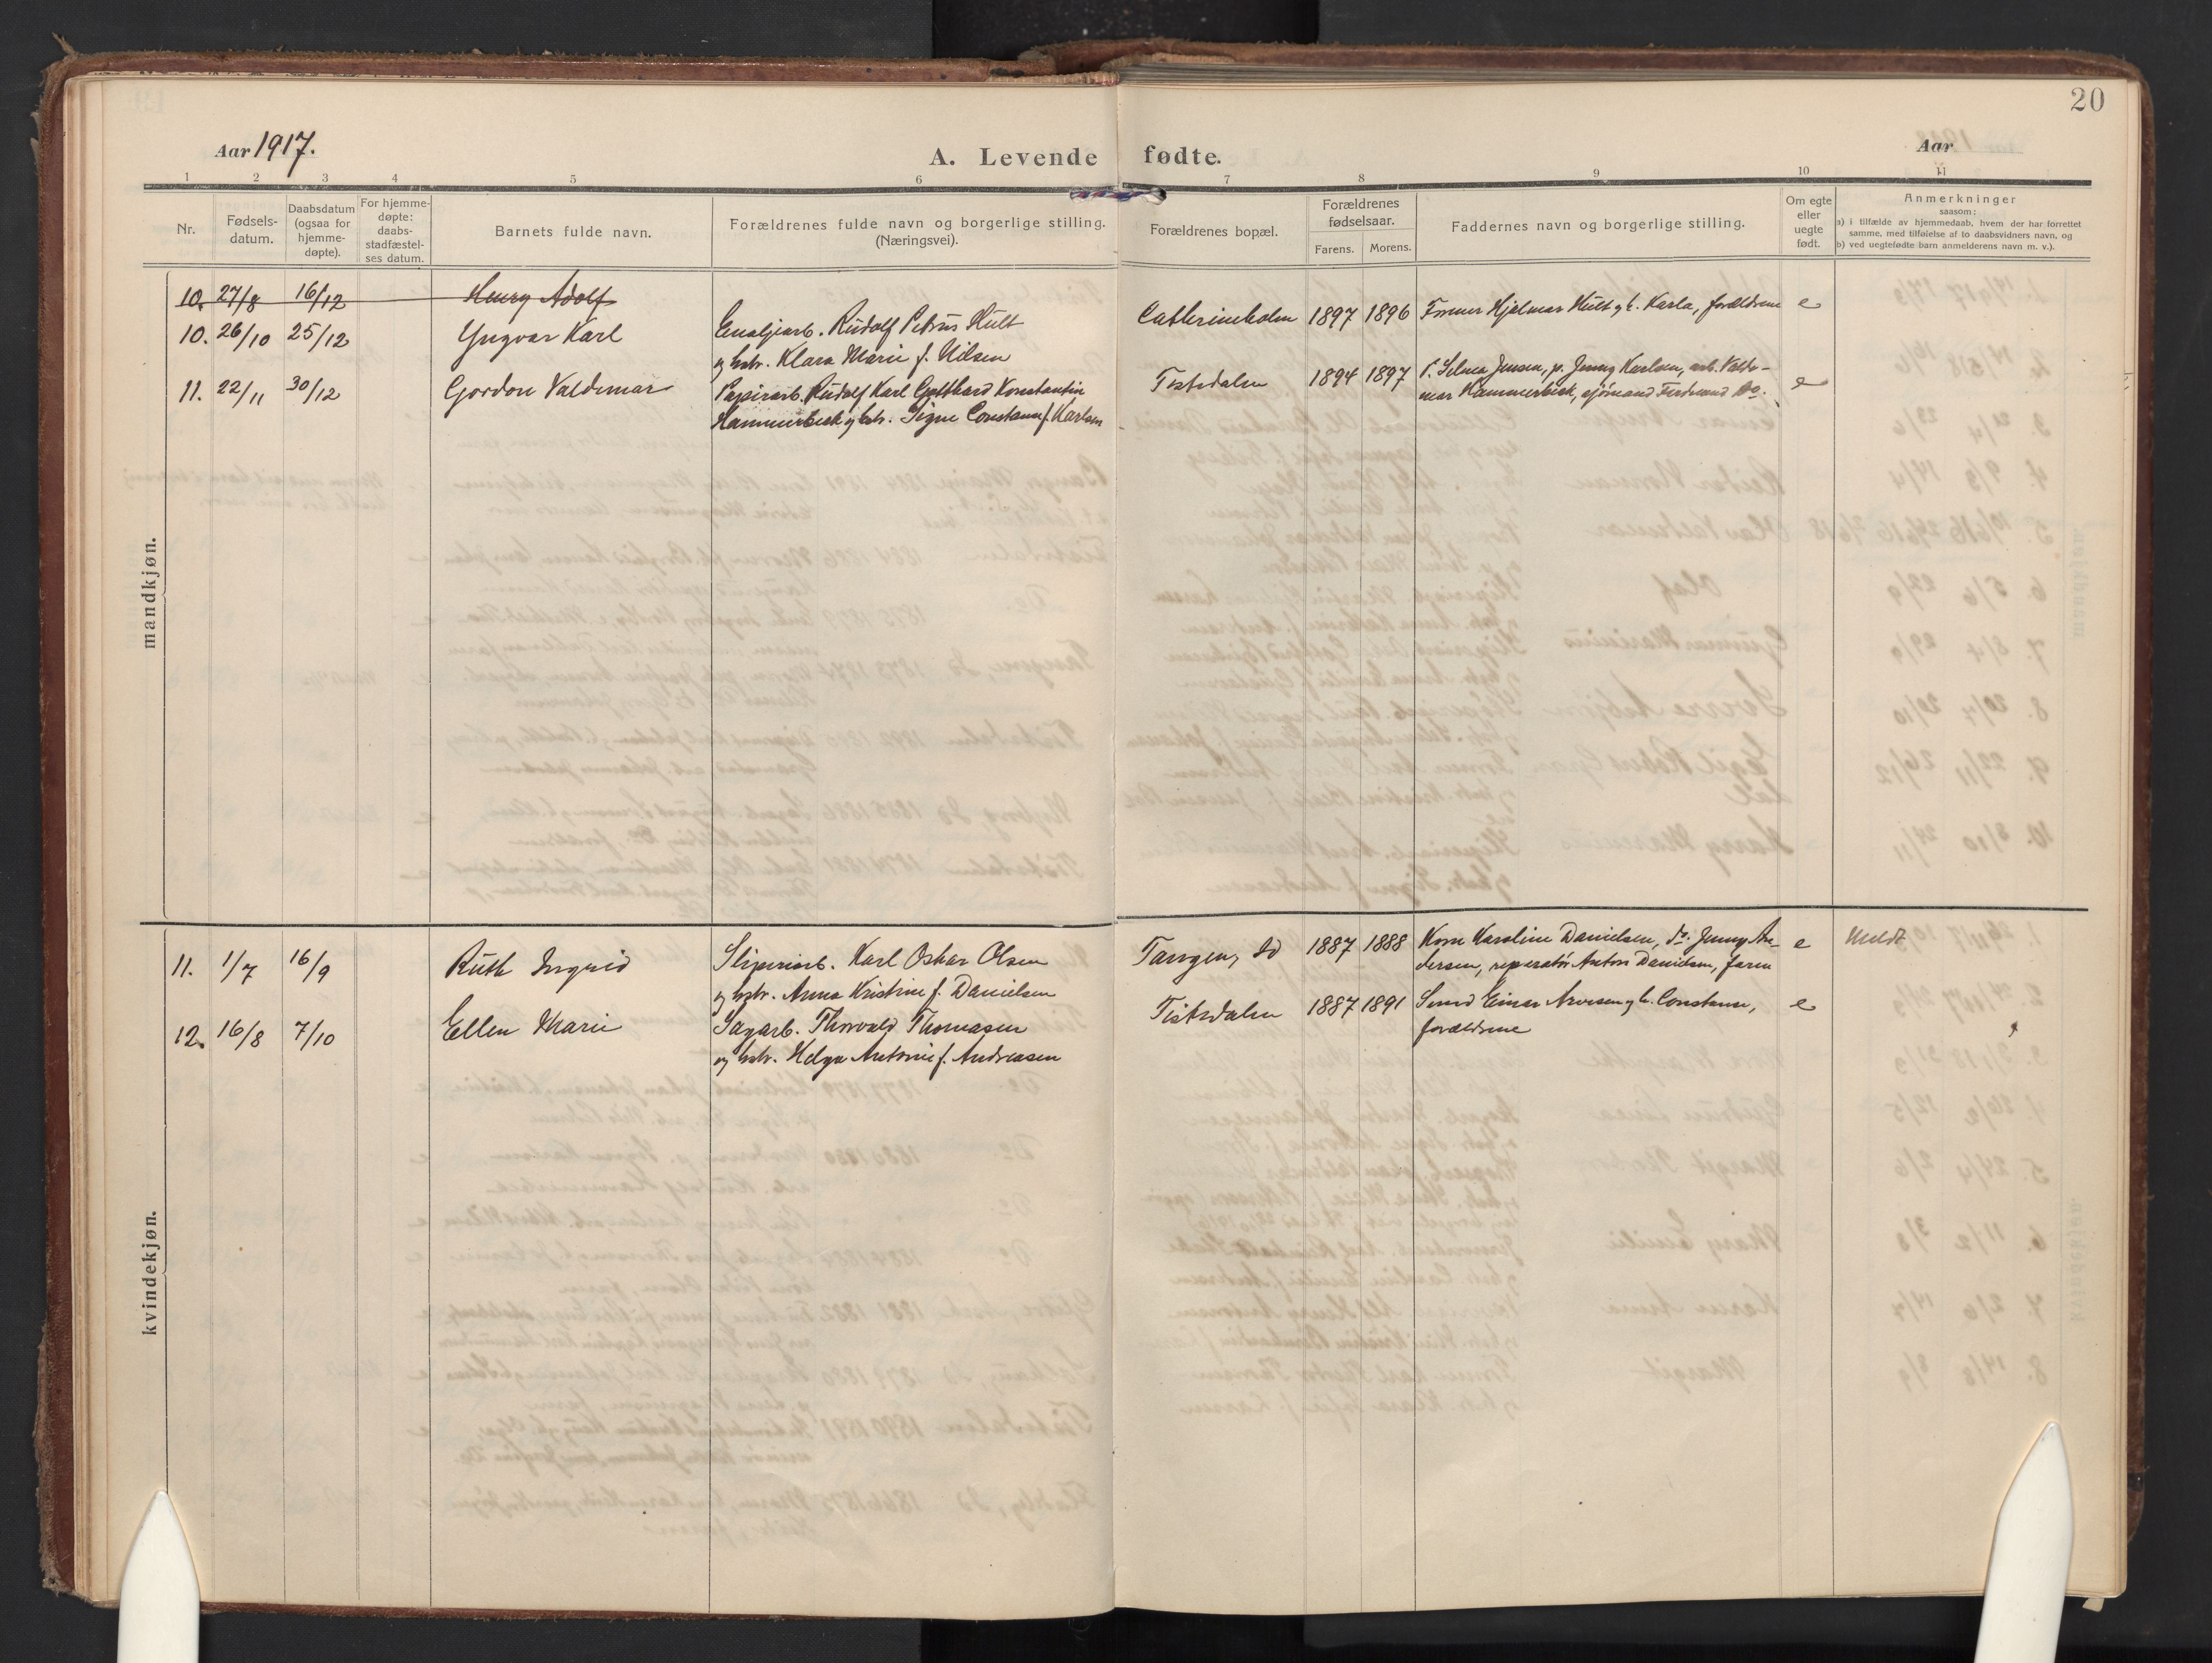 20
Aar 1917.
A. Levende fødte.
Aar
1 2 3 4 5 6 7 8 9 10 11
Nr.
Fødsels-
datum.
Daabsdatum
(ogsaa for
hjemme-
døpte).
For hjemme-
døpte:
daabs-
stadfæstel-
ses datum.
Barnets fulde navn.
Forældrenes fulde navn og borgerlige stilling.
(Næringsvei).
Forældrenes bopæl.
Forældrenes
fødselsaar.
Farens. Morens.
Faddernes navn og borgerlige stilling.
Om egte
eller
uegte
født.
Anmerkninger
saasom:
a) i tilfælde av hjemmedaab, hvem der har forrettet
samme, med tilføielse av to daabsvidners navn, og
b) ved uegtefødte barn anmelderens navn m. v.).
mandkjøn.
10. 27/8 16/12 Henry Adolf
10. 26/10 25/12 Yngvar Karl Emaljearb. Rudolf Petrus Hult Catherineholm 1897 1896 Former Hjalmar Hult og h. Karla, forældrene e
og hstr. Klara Marie f. Nilsen
11. 22/11 30/12 Gordon Valdemar Papirarb. Rudolf Karl Gotthard Konstantin Tistedalen 1894 1897 Selma Jensen, p. Jenny Karlsen, arb. Valde- e
Hammerbeck og hstr. Signe Constanse f. Karlsen mar Hammerbeck, sjømand Ferdinand Do.
kvindekjøn.
11. 1/7 16/9 Ruth Ingrid Sliperiarb. Karl Oskar Olsen Tangen, Id 1887 1888 Kone Karoline Danielsen, do. Jenny An- e Meldt
og hstr. Anna Kristine f. Danielsen dersen, reparatør Anton Danielsen, faren
12. 16/8 7/10 Ellen Marie Sagarb. Thorvald Thomasen Tistedalen 1887 1891 Smed Einar Arvesen og h. Constanse, e
og hstr. Helga Antonie f. Andreasen forældrene